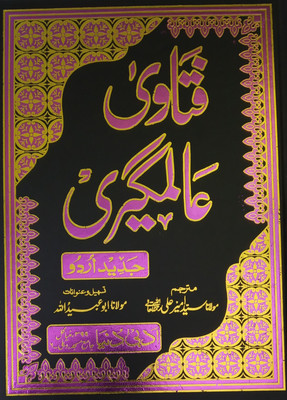 فتاویٰ
عالمگیری
جدید اُردو
مترجم
مولانا سید امیر علی
تسہیل و عنوانات
مولانا ابو عبید اللہ